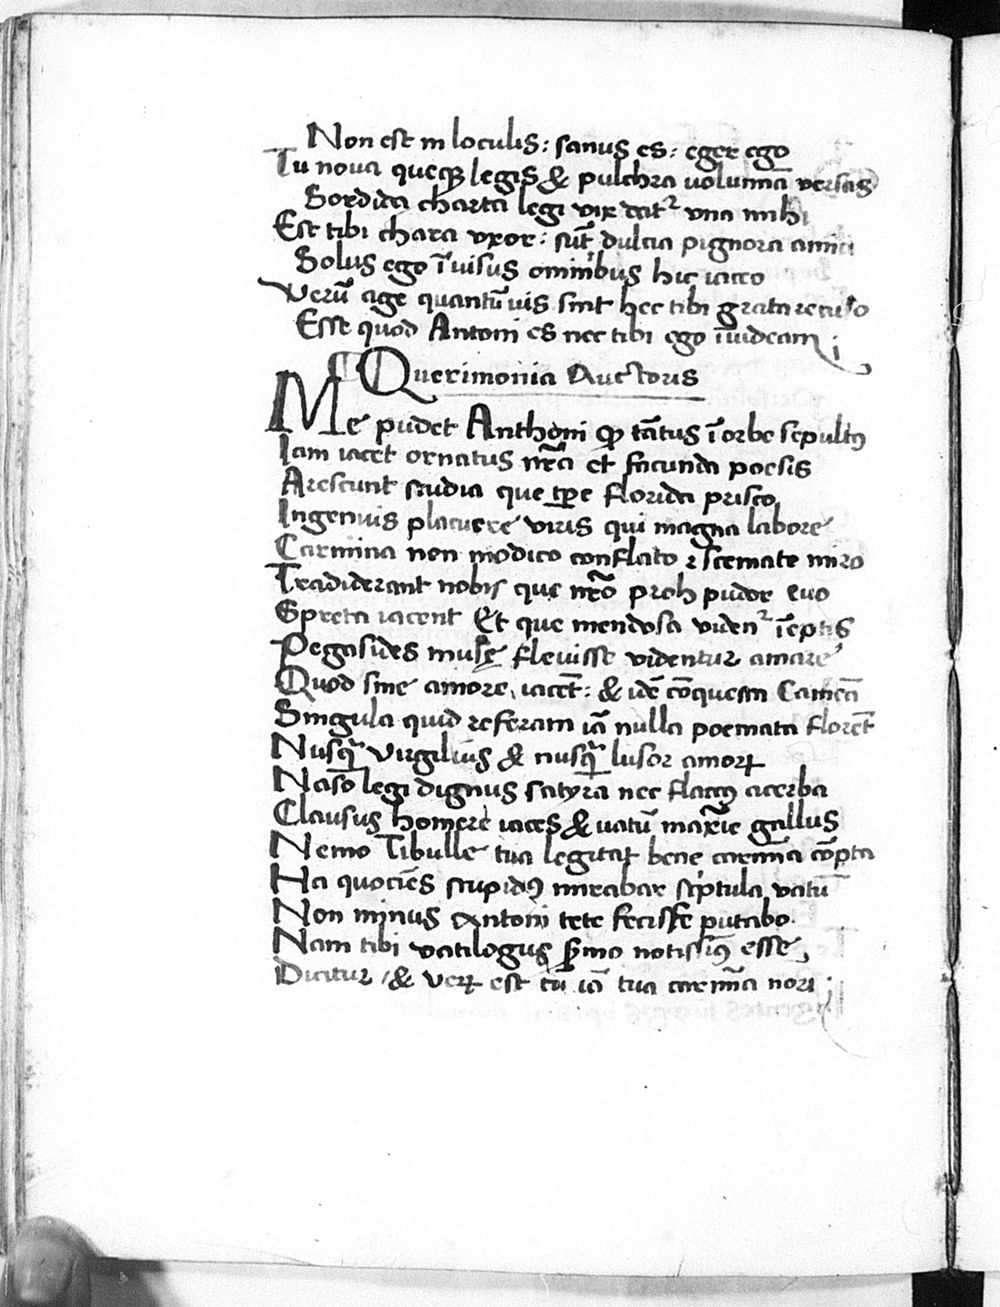 Non est in loculis: sanus es: eger ego
Tu nova queqꝫ legis & pulchra volumīa versas
Sordida charta legi vix datᷣ vna mihi
Est tibi chara vxor: sūt dulcia pignora amici
Solus ego īuisus omnibus hic iaceo
Verū age quantūuis sint hec tibi grata recuso
Esse quod Antoni es nec tibi ego īuideam;
¶ Querimonia Auctoris
Me pudet Anthoni ꝙ tātus ī orbe sepultꝰ
Iam iacet ornatus nr̄a et facunda poesis
Arescunt studia que tp̄e florida prisco
Ingenuis placuere viris qui magna labore
Carmina non modico conflato ꝛ scemate miro
Tradiderant nobis que nr̄o proh pudor euo
Spreta iacent Et que mendosa videnᷣ īeptis
Pegasides musę flevisse videntur amare
Quod sine amore iacēt: & idē cōquesta Camenā
Singula quid referam iā nulla poemata florēt
Nusꝗ̄ Virgilius & nusꝗ̄ lusor amoꝝ
Naso legi dignus satyra nec flaccꝰ acerba
Clausus homere iaces & vatū maxīe gallus
Nemo Tibulle tua legitat bene carmīa cōpta
Ha quociēs stupidꝰ mirabar scriptula vatū
Non minus Antoni tete fecisse putabo.
Nam tibi vatilogus ꝓma notissimꝰ esse
Dicitur / & veꝝ est cū iā tua carmīa nori;